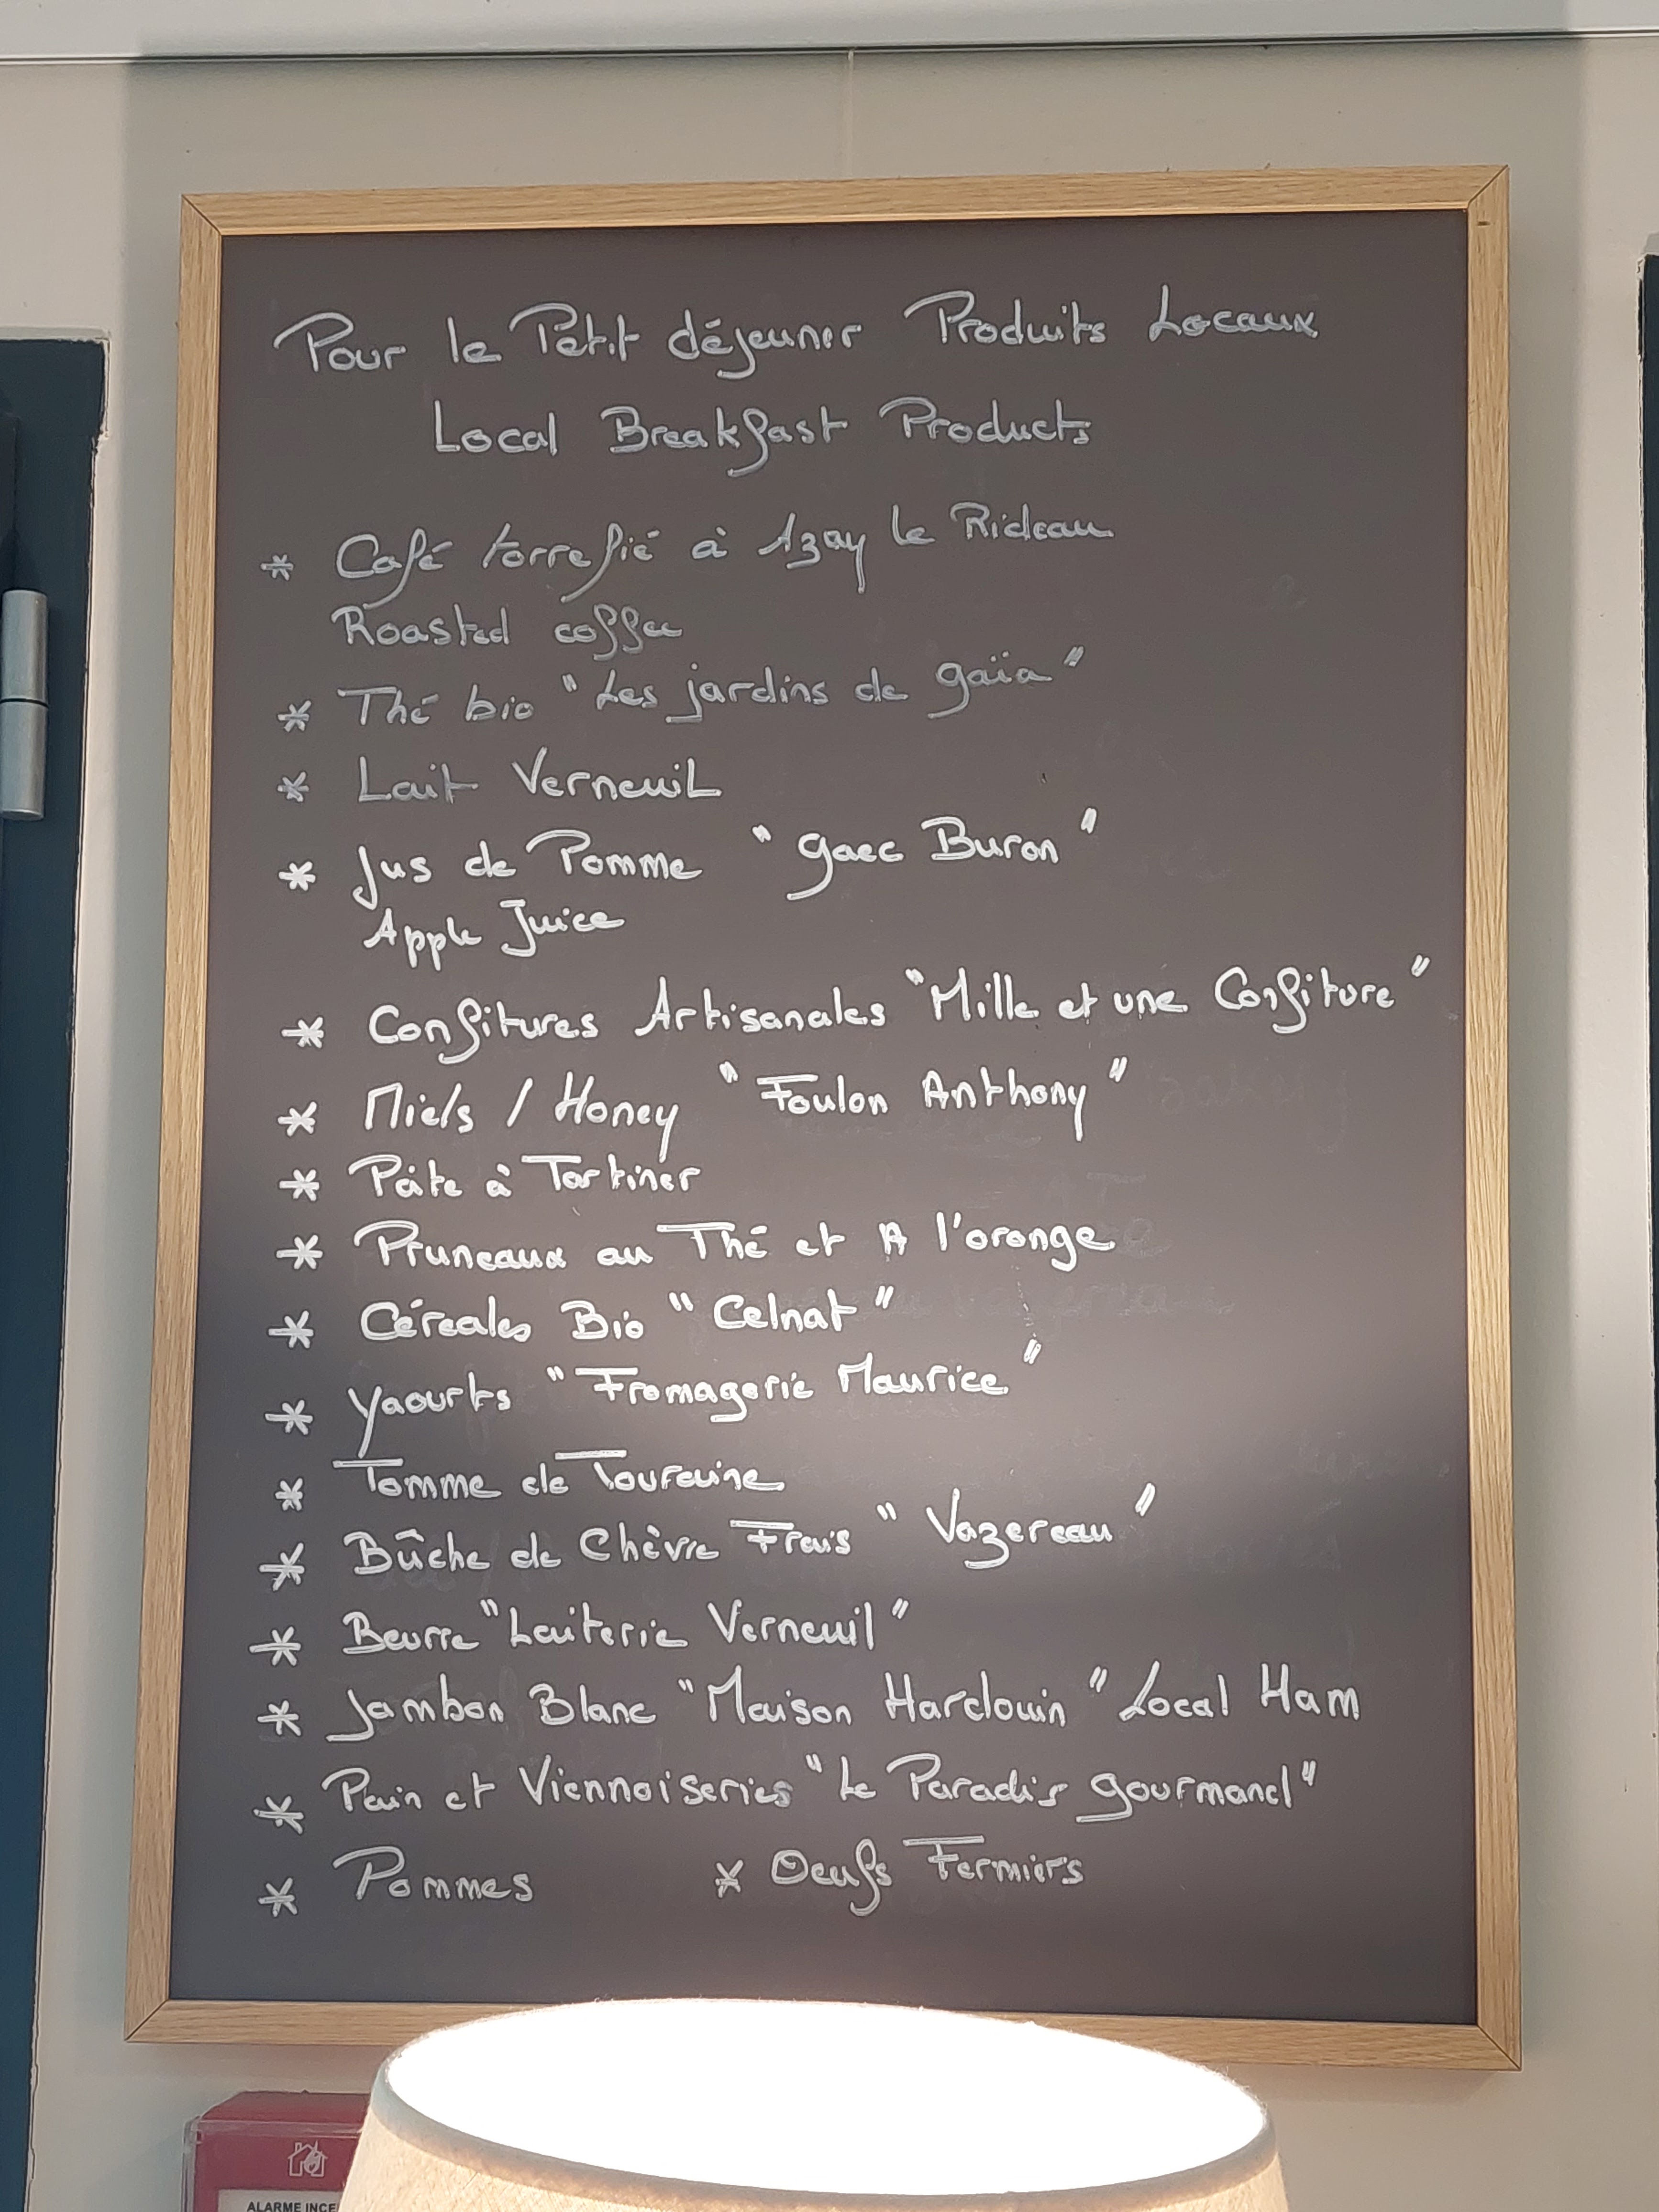 Pour le Petit déjeuner Produits Locaux
Local Breakfast Products
* Café torrefié à Azay le Rideau
Roasted coffee
* Thé bio "Les jardins de gaïa"
* Lait Verneuil
* Jus de Pomme "gaec Buron"
Apple Juice
* Confitures Artisanales "Mille et une Confiture"
* Miels / Honey "Foulon Anthony"
* Pâte à Tartiner
* Pruneaux au Thé et A l'orange
* Céreales Bio "Celnat"
* Yaourts "Fromagerie Maurice"
* Tomme de Touraine
* Bûche de Chèvre Frais "Vazereau"
* Beurre "Laiterie Verneuil"
* Jambon Blanc "Maison Hardouin" Local Ham
* Pain et Viennoiseries "Le Paradis gourmand"
* Pommes * Oeufs Fermiers